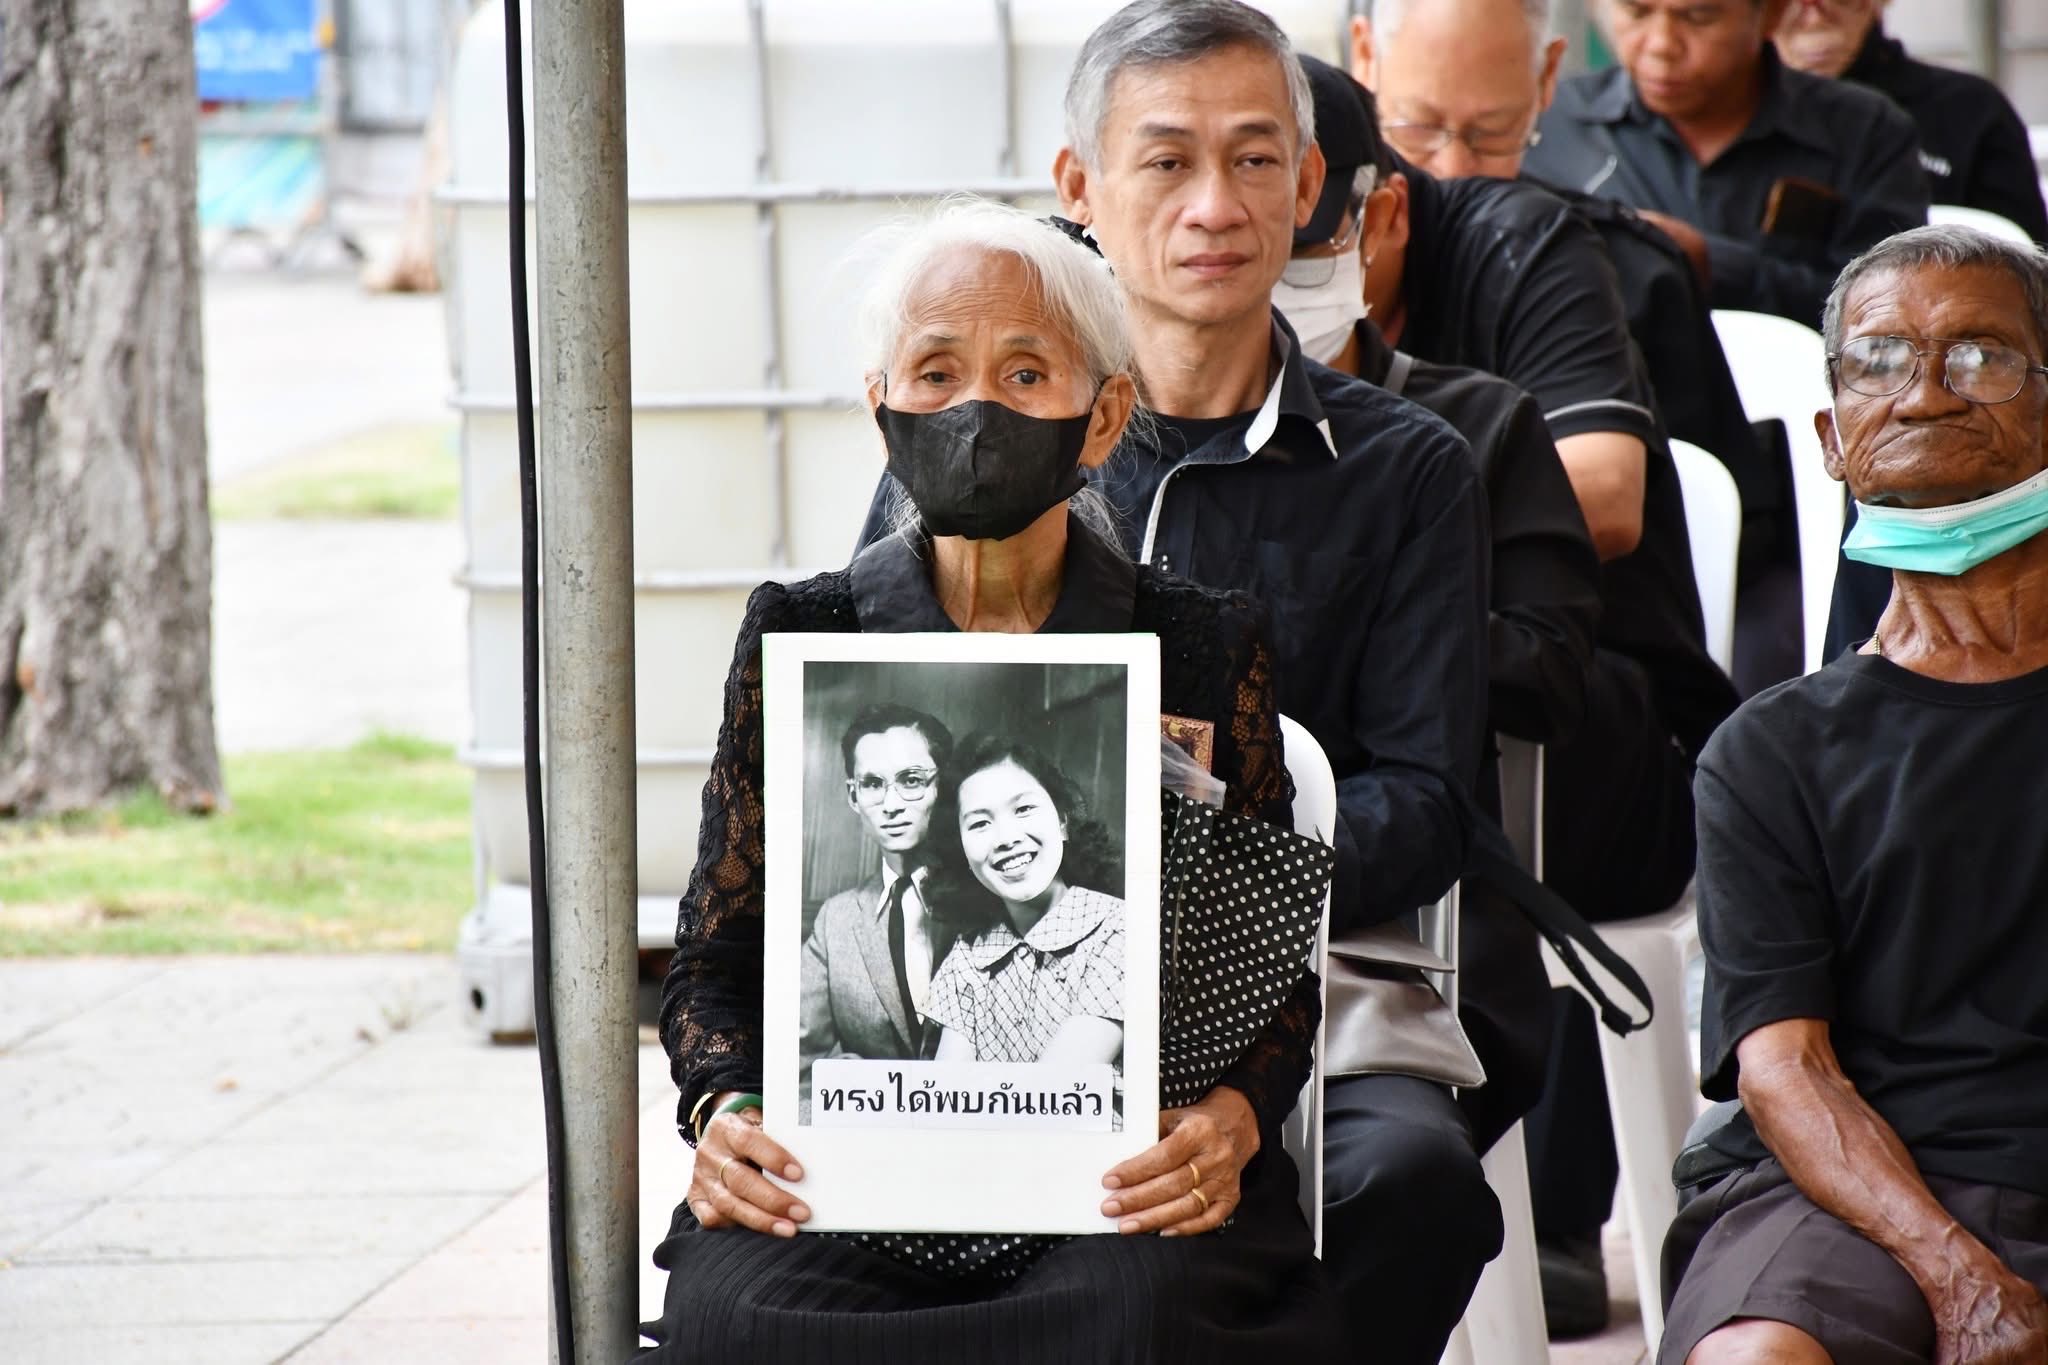 ทรงได้พบกันแล้ว